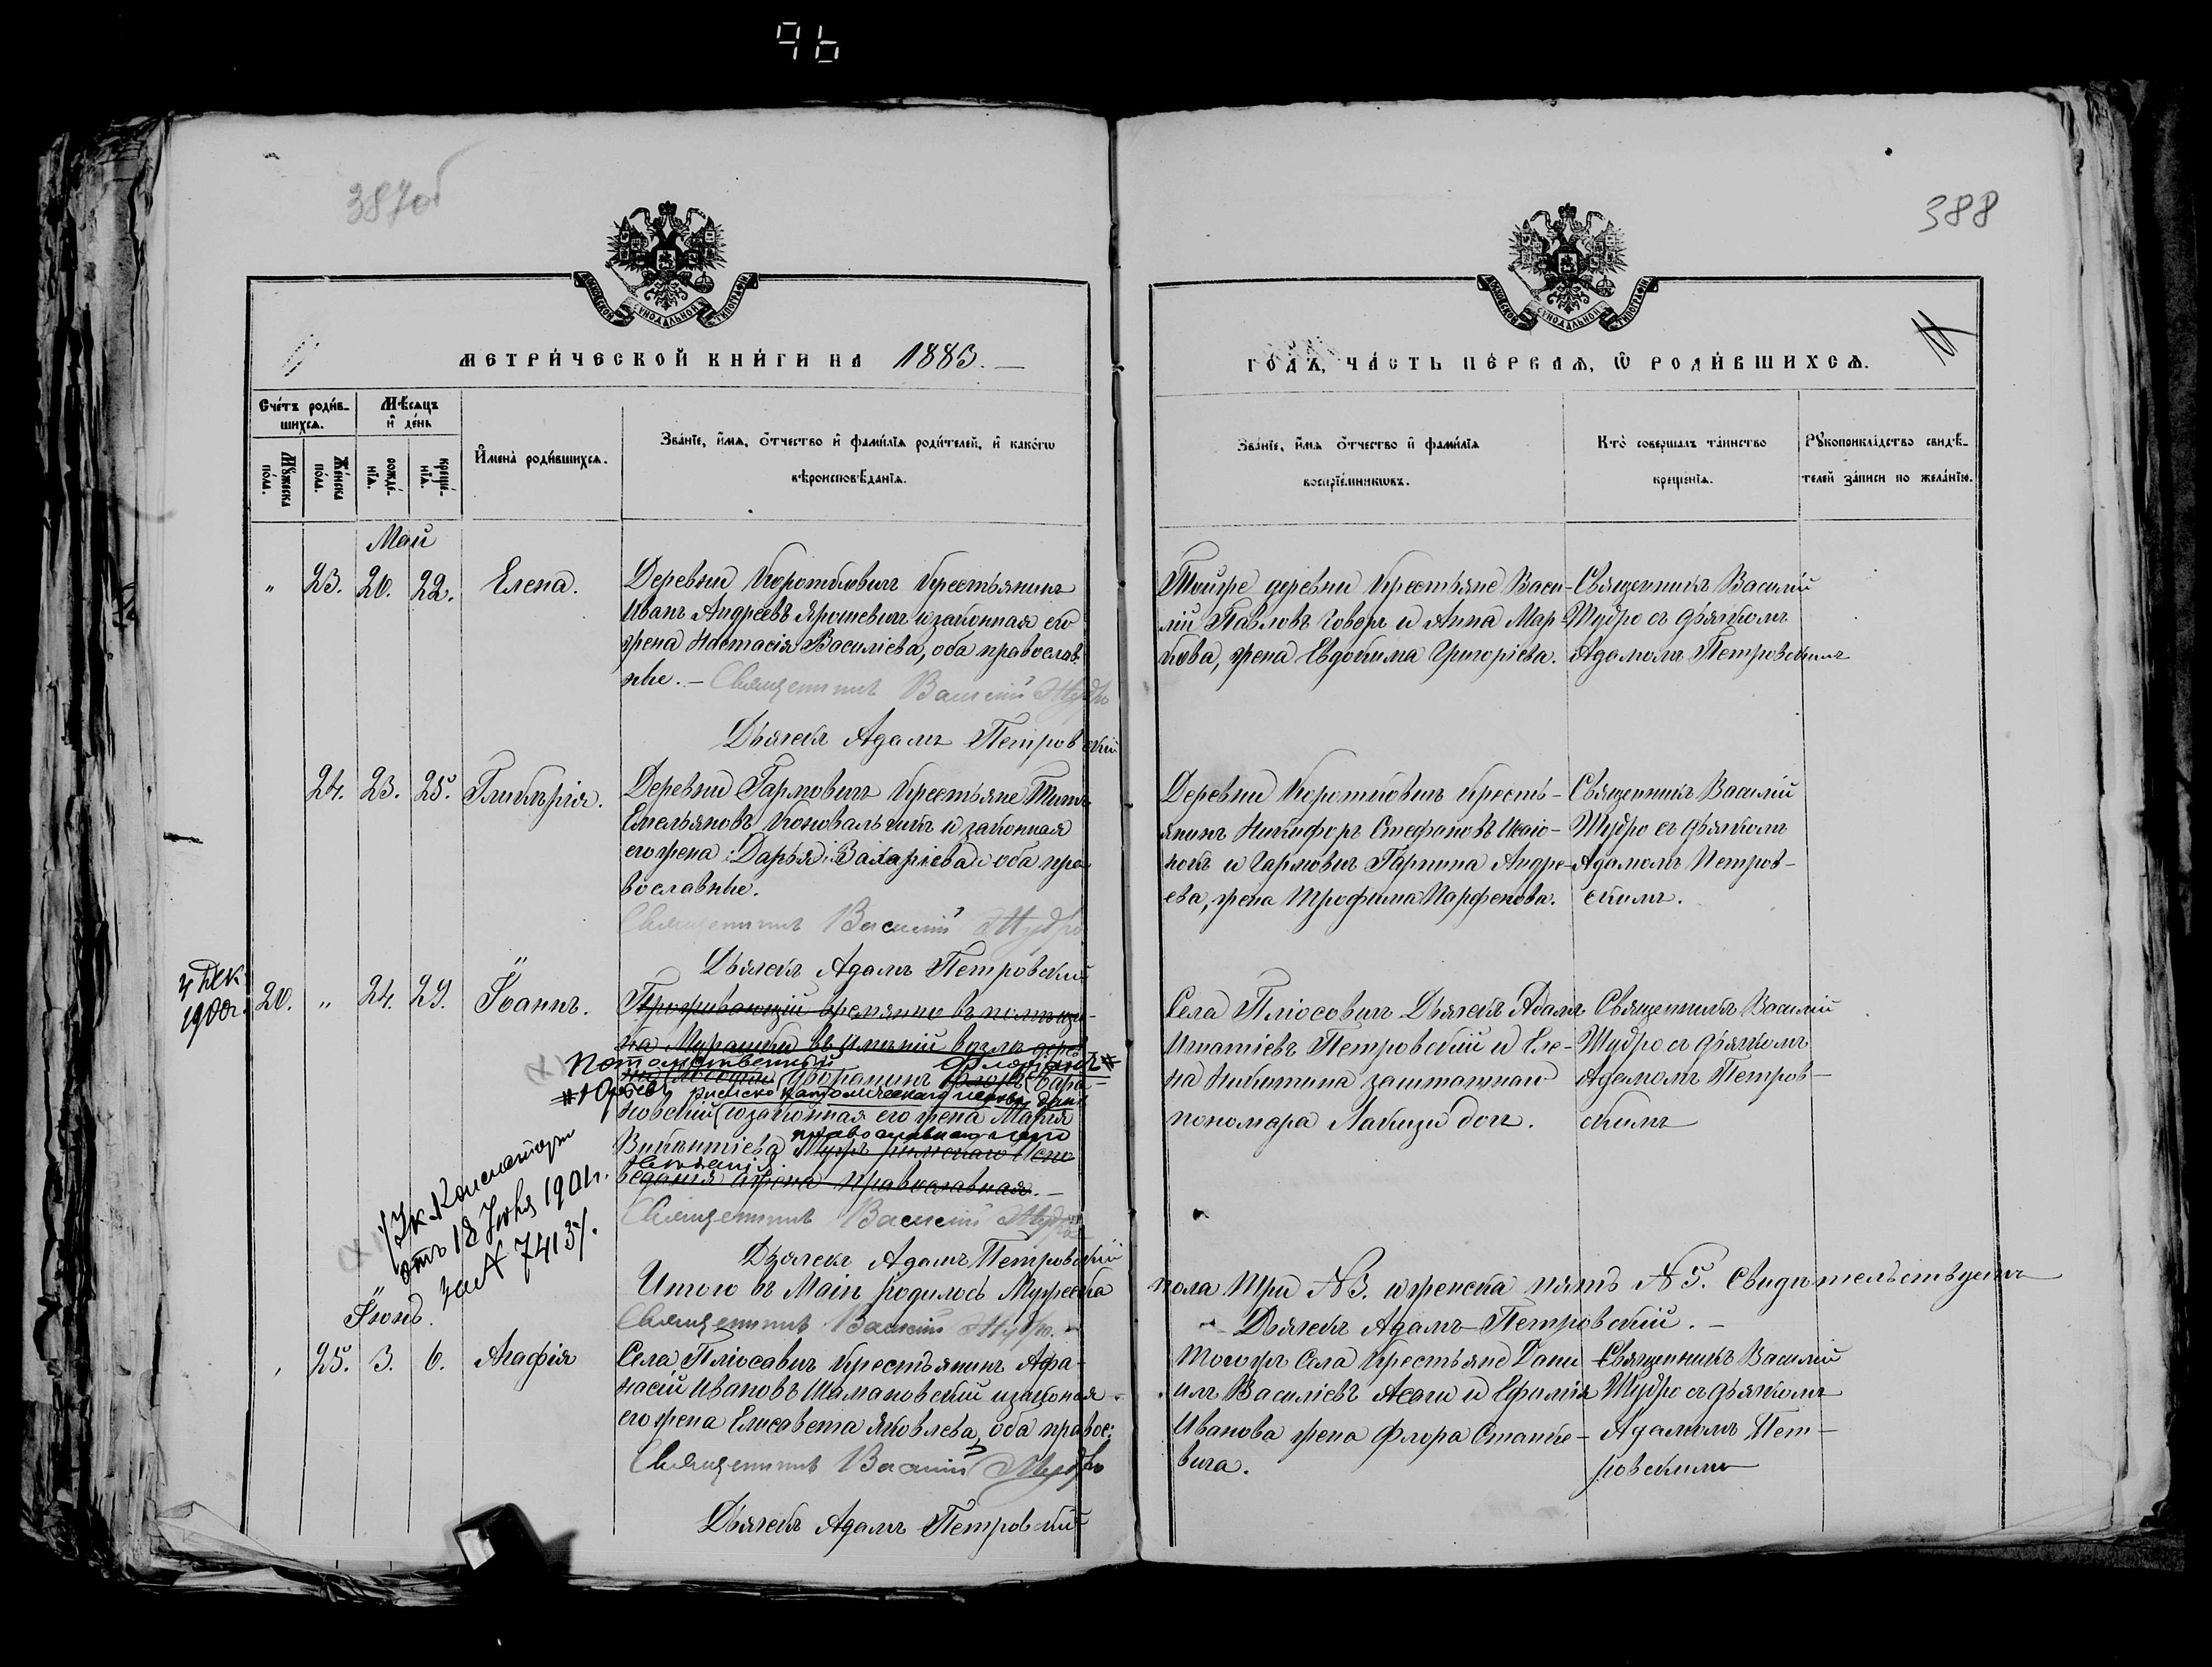 9 6
387об
388
МЕТРИЧЕСКОЙ КНИГИ НА 1883.
ГОДЪ, ЧАСТЬ ПЕРВАЯ, Ѿ РОДИВШИХСЯ.
Счетъ родившихся.
Мѣсяцъ и день
Имена родившихся.
Званїе, имя, отчество и фамилїя родителей, и какогѡ вѣроисповѣданїя.
Званїе, имя отчество и фамилїя воспрїемникѡвъ.
Кто совершалъ таинство крещенїя.
Рукоприкладство свидѣтелей записи по желанїю.
Мужеска пола.
Женска пола.
рождénїя.
крещéнїя.
Май
" 23. 20. 22. Елена.
Деревни Коротковичъ Крестьянинъ
Иванъ Андреевъ Ярошевичъ и законная его
жена Настасія Василіева, оба православ
ные. – Священникъ Василій Мудро
Дьячекъ Адамъ Петровскій
Тойже деревни Крестьяне Васи-
лій Павловъ Говоръ и Анна Мар-
кова, жена Евдокима Григоріева.
Священникъ Василій
Мудро съ дьячкомъ
Адамомъ Петровскимъ
24. 23. 25. Гликерія.
Деревни Гармовичъ Крестьяне Титъ
Емельяновъ Коновальчикъ и законная
его жена Дарья Захаріева оба пра
вославные.
Священникъ Василій Мудро
Дьячекъ Адамъ Петровскій
Деревни Коротковичъ кресть-
янинъ Никифоръ Стефановъ
и Гармовичъ Гарпина Андре-
ева, жена Трофима Парфенова.
Священникъ Василій
Мудро съ дьячкомъ
Адамомъ Петров-
скимъ.
4 Дек.
1900г.
20. " 24. 29. Іоаннъ.
Проживающій временно въ помѣщи-
ка Мурашки въ имѣній возлѣ дерев
Потомственный
дворянинъ
римско католическаго
новскій и законная его жена Марія
Викентіева
православнаго
ведания а жена православная. –
Священникъ Василій Мудро
Дьячекъ Адамъ Петровскій
Села Плюсовичъ Дьячекъ Адамъ
Игнатіевъ Петровскій и Еле-
на Никитина заштатнаго
пономаря дочь.
Священникъ Василій
Мудро съ дьячкомъ
Адамомъ Петров-
скимъ
Ук. Консисторіи
отъ 18 Іюня 1901г.
за № 7413
Итого въ Маіи родилось Мужеска
пола три №3. и женска пять №5. Свидѣтельствуетъ
Священникъ Василій Мудро.
Дьячекъ Адамъ Петровскій. –
Іюнь.
25. 3. 6. Агафія
Села Плюсовичъ Крестьянинъ Афа-
насій Ивановъ Шамановскій и законая
его жена Елисавета Яковлева, оба правос:
Священникъ Василій Мудро
Дьячекъ Адамъ Петровскій
Тогожъ Села Крестьяне Дани
илъ Василіевъ и Ефимія
Иванова жена Флора Станке-
вича.
Священникъ Василій
Мудро съ дьячкомъ
Адамомъ Пет-
ровскимъ